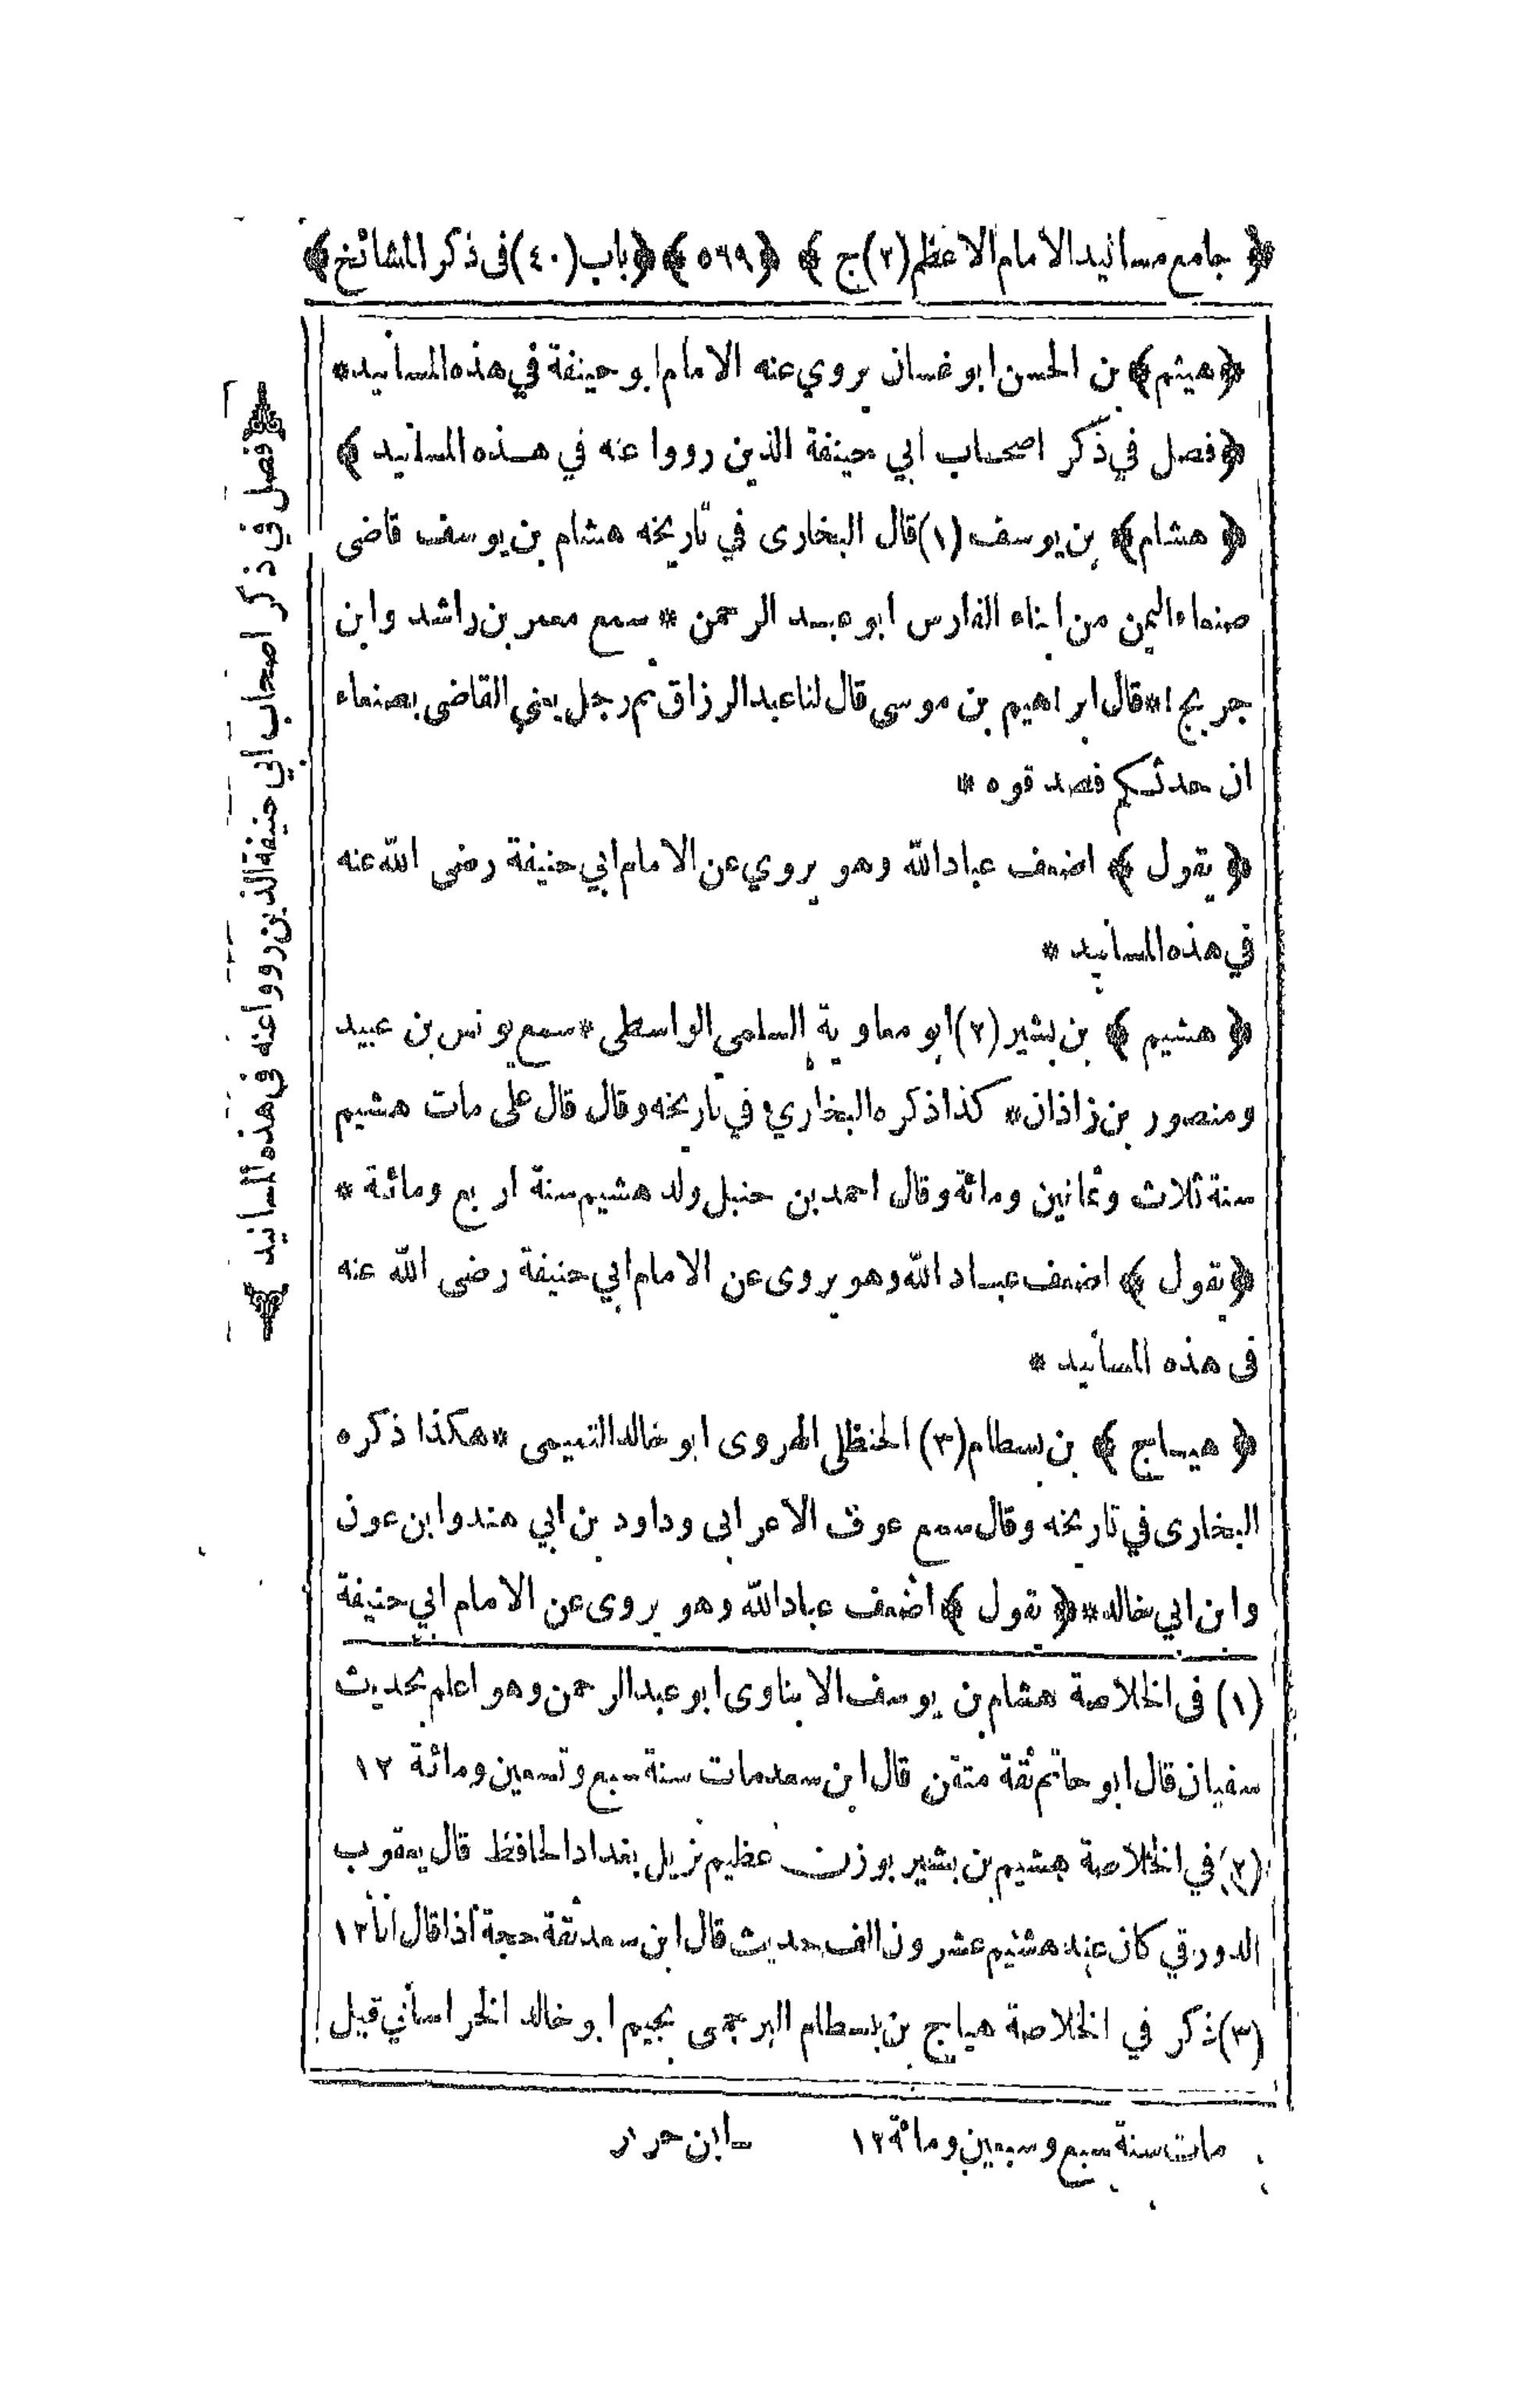 ﴿ جامع مسانيد الامام الاعظم (٢) ج ﴾ ﴿ ٥٦٩ ﴾ ﴿ باب (٤٠) فى ذكر المشائخ ﴾
﴿ هيثم ﴾ بن الحسن ابو غسان يروي عنه الامام ابو حنيفة في هذه المسانيد *
﴿ فصل في ذكر اصحاب ابي حنيفة الذين رووا عنه في هذه المسانيد ﴾
﴿ هشام ﴾ بن يوسف (١) قال البخارى في تاريخه هشام بن يوسف قاضى
صنعاء اليمن من ابناء الفارس ابو عبد الرحمن * سمع معمر بن راشد وابن
جريج * قال ابراهيم بن موسى قال لنا عبد الرزاق ثم رجل يعني القاضى بصنعاء
ان حدثكم فصدقوه *
﴿ يقول ﴾ اضعف عباد الله وهو يروي عن الامام ابي حنيفة رضى الله عنه
في هذه المسانيد *
﴿ هشيم ﴾ بن بشير (٢) ابو معاوية السلمي الواسطى * سمع يونس بن عبيد
ومنصور بن زاذان * كذا ذكره البخاري في تاريخه وقال قال على مات هشيم
سنة ثلاث وثمانين ومائة وقال احمد بن حنبل ولد هشيم سنة اربع ومائة *
﴿ يقول ﴾ اضعف عباد الله وهو يروى عن الامام ابي حنيفة رضى الله عنه
فى هذه المسانيد *
﴿ هياج ﴾ بن بسطام (٣) الحنظلى الهروى ابو خالد التميمى * هكذا ذكره
البخارى في تاريخه وقال سمع عوف الاعرابى وداود بن ابي هند وابن عون
وابن ابي خالد * ﴿ يقول ﴾ اضعف عباد الله وهو يروى عن الامام ابي حنيفة
(١) فى الخلاصة هشام بن يوسف الابناوى ابو عبد الرحمن وهو اعلم بحديث
سفيان قال ابو حاتم ثقة متقن قال ابن سعد مات سنة سبع وتسعين ومائة ١٢
(٢) في الخلاصة هشيم بن بشير بوزن عظيم نزيل بغداد الحافظ قال يعقوب
الدورقي كان عند هشيم عشرون الف حديث قال ابن سعد ثقة حجة اذا قال انا ١٢
(٣) ذكر في الخلاصة هياج بن بسطام البرجمى بجيم ابو خالد الخراساني قيل
مات سنة سبع وسبعين ومائة ١٢
فصل في ذكر اصحاب ابي حنيفة الذين رووا عنه فى هذه المسانيد